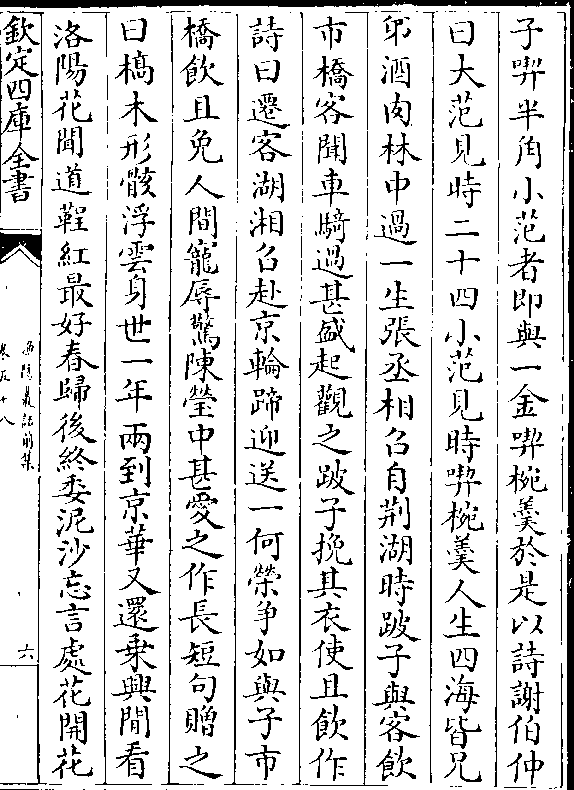 子喫半角小范者即與一金喫椀羹於是以詩謝伯仲
曰大范見時二十四小范見時喫椀羹人生四海皆兄
弟酒肉林中過一生張丞相召自荆湖時跛子與客飲
市橋客聞車騎過甚盛起觀之跛子挽其衣使且飲作
詩曰遷客湖湘召赴京輪蹄迎送一何榮争如與子市
橋飲且免人間寵辱驚陳瑩中甚愛之作長短句贈之
曰槁木形骸浮雲身世一年兩到京華又還乗興閒看
洛陽花聞道鞓紅最好春歸後終委泥沙忘言處花開花
欽定四庫全書
漁隱叢話前集
卷五十八
六